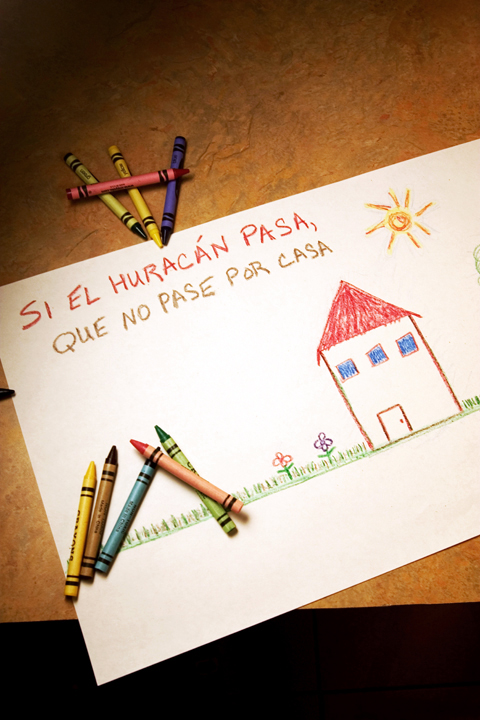 SI EL HURACÁN PASA,
QUE NO PASE POR CASA